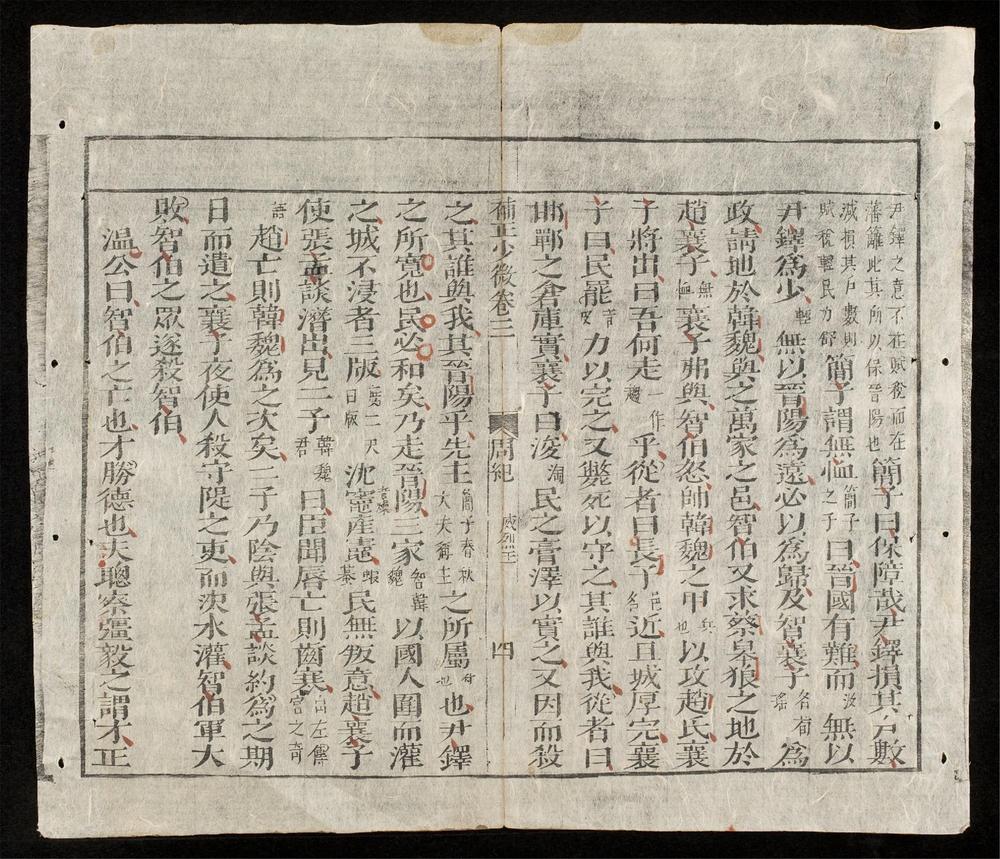 尹鐸之意不在賦稅而在藩籬此其所以保晉陽也簡子曰保障哉尹鐸損其戶數
減損其戶數則賦稅輕民力舒簡子謂無恤簡子之子曰晉國有難而汝無以
尹鐸為少輕無以晉陽為遠必以為歸及智襄子名荀瑤為
政請地於韓魏與之萬家之邑智伯又求蔡皋狼之地於
趙襄子無恤襄子弗與智伯怒帥韓魏之甲兵也以攻趙氏襄
子將出曰吾何走一作趨乎從者曰長子邑名近且城厚完襄
子曰民罷音疲力以完之又斃死以守之其誰與我從者曰
邯鄲之倉庫實襄子曰浚淘民之膏澤以實之又因而殺
補正少微卷三 周紀 威烈王 四
之其誰與我其晉陽乎先主簡子春秋大夫稱主之所屬也尹鐸
之所寬也民必和矣乃走晉陽三家智韓魏以國人圍而灌
之城不浸者三版高二尺曰版沈竈產鼃民無叛意趙襄子
使張孟談潛出見二子韓魏君曰臣聞唇亡則齒寒出左傳宮之奇
語趙亡則韓魏為之次矣二子乃陰與張孟談約為之期
日而遣之襄子夜使人殺守隄之吏而決水灌智伯軍大
敗智伯之眾遂殺智伯
溫公曰智伯之亡也才勝德也夫聰察彊毅之謂才正